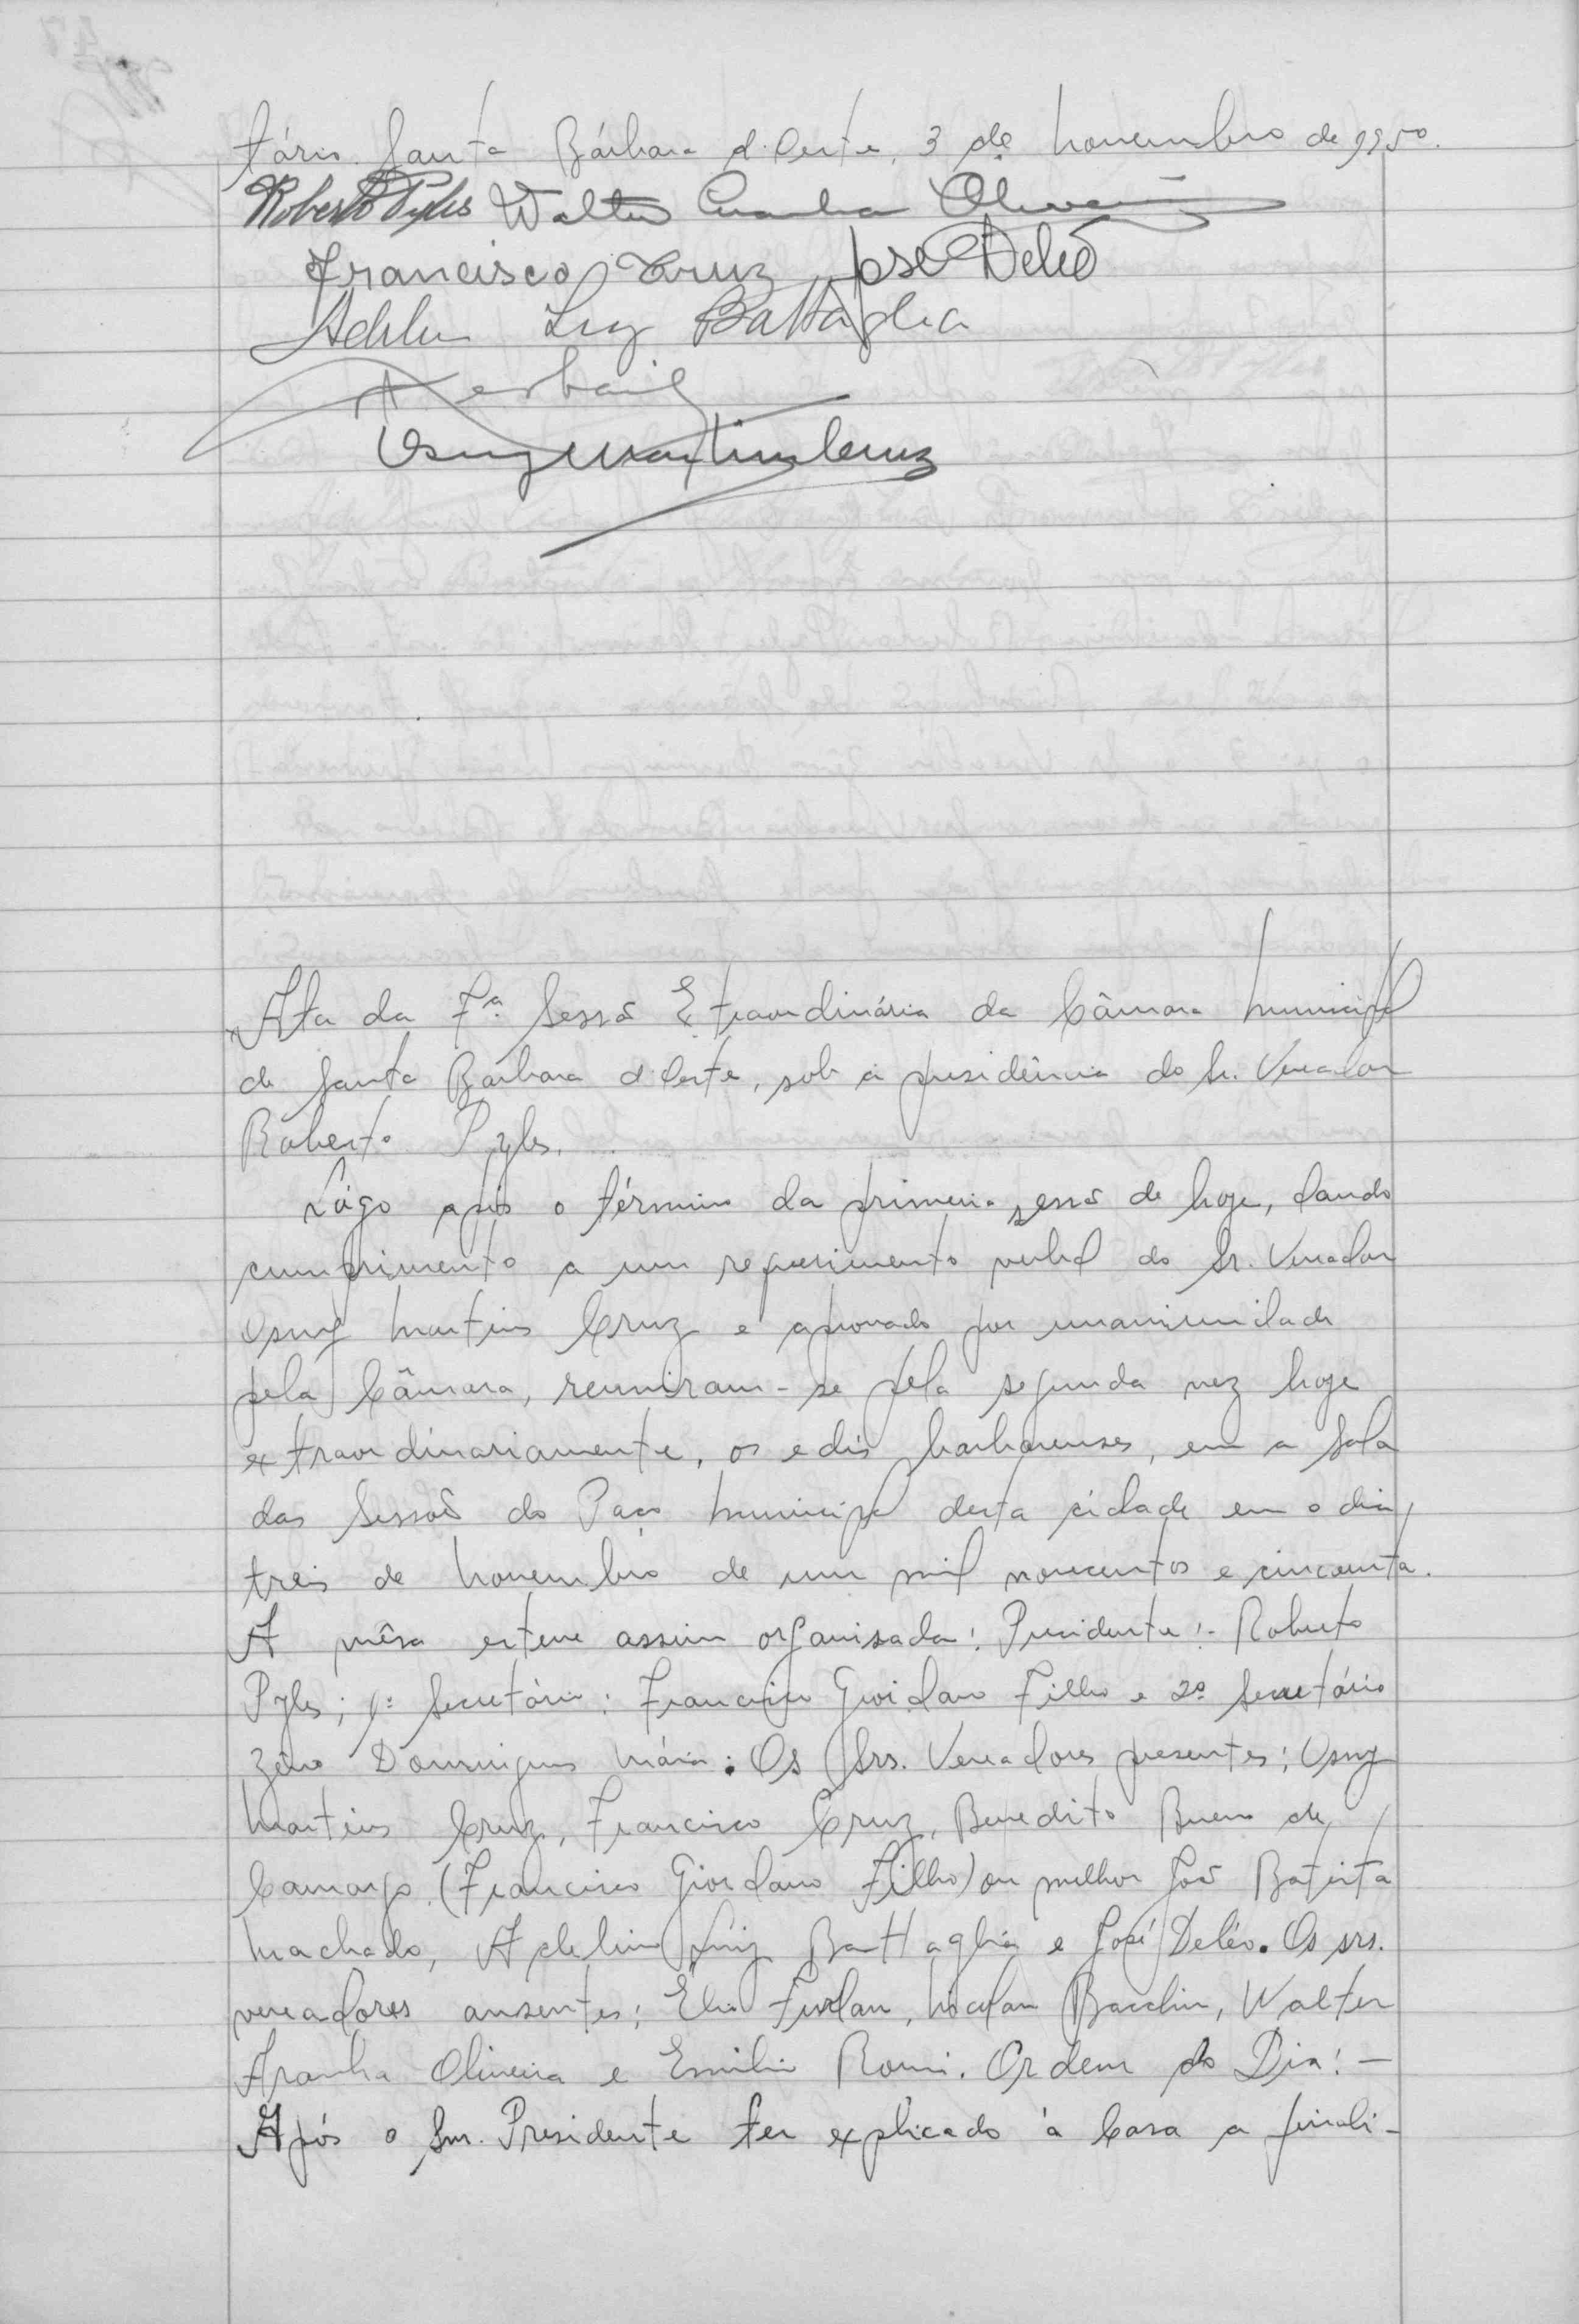 tário. Santa Bárbara d'Oeste, 3 de novembro de 1950.
Roberto Pyles Walter Aranha Oliveira
Francisco Cruz José Deléo
Adelino Luiz Battaglia
Osmy Martins Cruz
Ata da 7ª Sessão Etraordinária da Câmara Municipal
de Santa Bárbara d'Oeste, sob a presidência do Sr. Vereador
Roberto Pyles.
Lógo após o término da primeira sessão de hoje, dando
cumprimento a um requerimento verbal do Sr. Vereador
Osmy Martins Cruz e aprovado por unanimidade
pela Câmara, reuniram-se pela segunda vez hoje
extraordinariamente, os edis barbarenses, em a Sala
das Sessões do Paço Municipal desta cidade em o dia
treis de novembro de um mil novecentos e cincoenta.
A mêsa esteve assim organisada: Presidente:- Roberto
Pyles; 1º Secretário: Francisco Giordano Filho e 2º Secretário
Zêno Domingues Máia. Os Srs. Vereadores presentes: Osmy
Martins Cruz, Francisco Cruz, Benedito Bueno de
Camargo, (Francisco Giordano Filho) ou melhor João Batista
Machado, Adelino Luiz Battaglia e José Deléo. Os srs.
vereadores ausentes: Elio Furlan, Bacchin, Walter
Aranha Oliveira e Emilio Romi. Ordem do Dia:—
Após o Snr. Presidente ter explicado à Casa a finali-